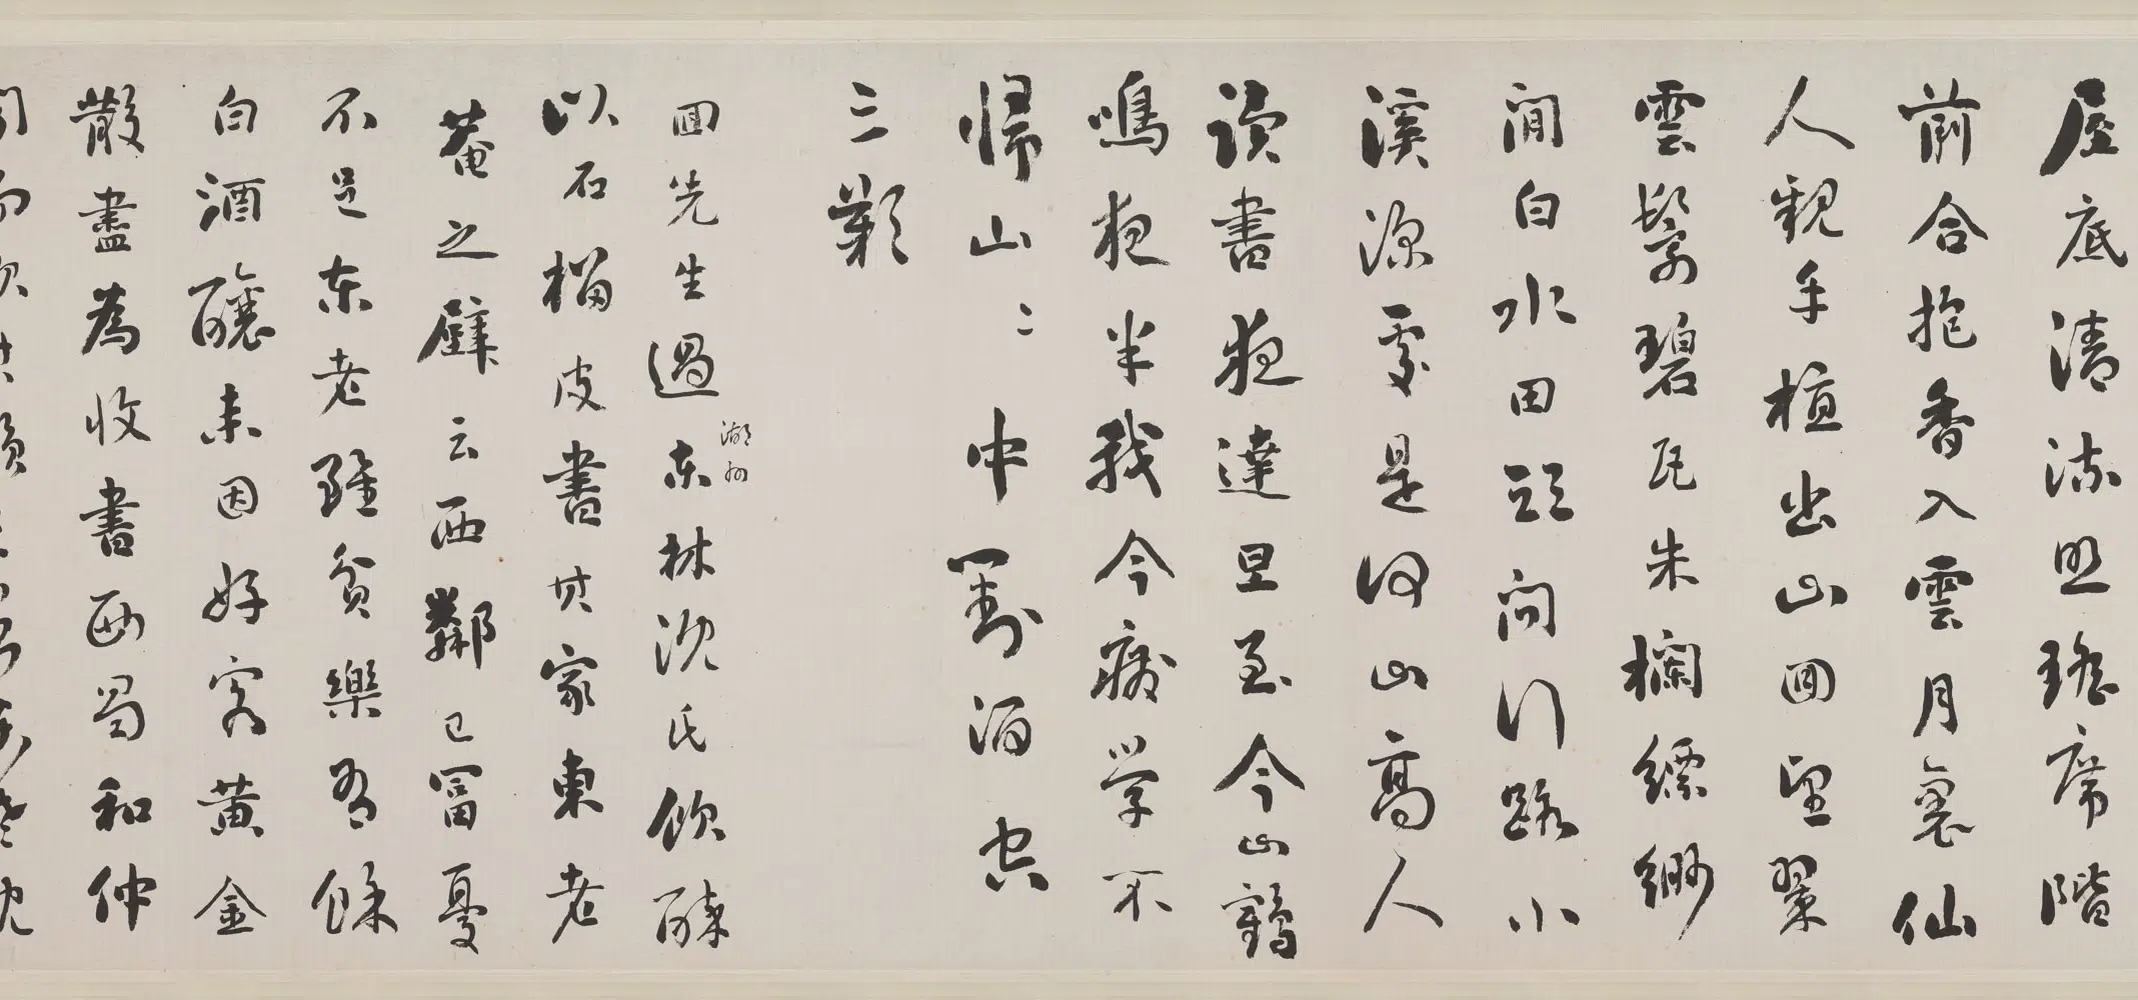 屋底清流照瑤席階
前合抱香入雲月裏仙
人親手植出山回望翠
雲鬟碧瓦朱欄縹緲
間白水田頭問行路小
溪深處是何山高人
讀書夜達旦至今山鶴
鳴夜半我今廢學不
歸山〻中對酒空
三歎
回先生過湖州東林沈氏飲醉
以石榴皮書其家東老
菴之壁云西鄰已富憂
不足東老雖貧樂有餘
白酒釀來因好客黃金
散盡為收書西蜀和仲